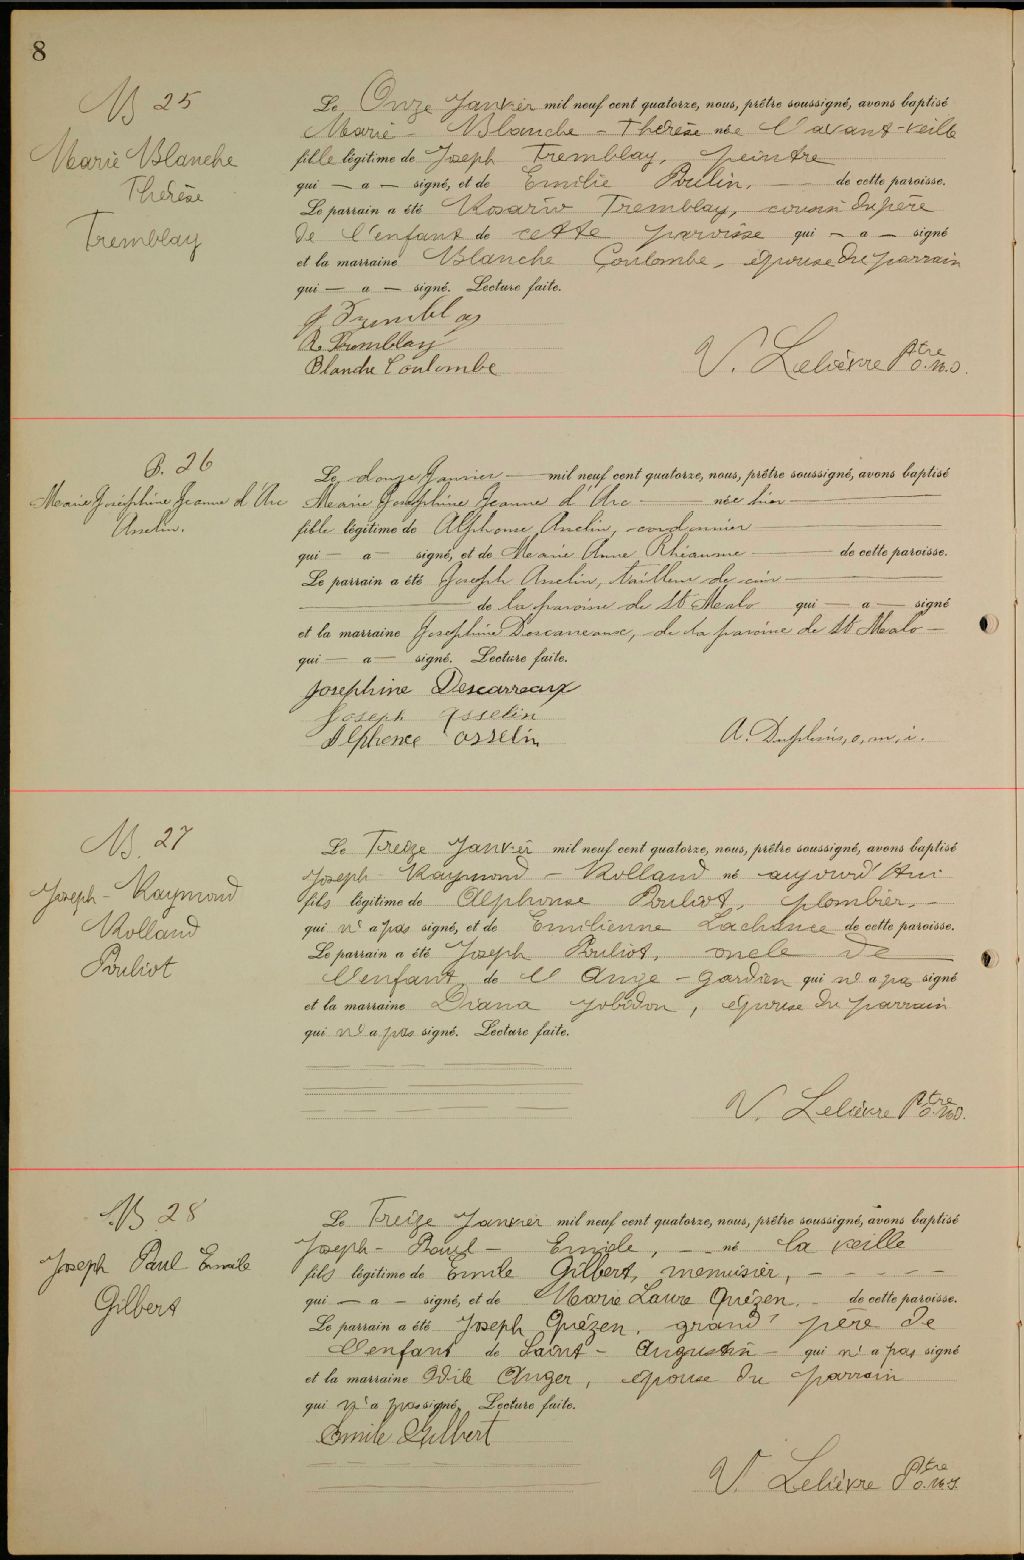 8
B 25
Marie Blanche
Thérèse
Tremblay
Le Onze Janvier mil neuf cent quatorze, nous, prêtre soussigné, avons baptisé
Marie - Blanche - Thérèse née l'avant-veille
fille légitime de Joseph Tremblay, peintre
qui — a — signé, et de Emilie Poulin, — de cette paroisse.
Le parrain a été Rosario Tremblay, cousin du père
de l'enfant de cette paroisse qui — a — signé
et la marraine Blanche Coulombe, épouse du parrain
qui — a — signé. Lecture faite.
J. Tremblay
R. Tremblay
Blanche Coulombe
V. Lelièvre Ptre o.m.i.
B. 26
Marie Joséphine Jeanne d'Arc
Asselin.
Le douze Janvier — mil neuf cent quatorze, nous, prêtre soussigné, avons baptisé
Marie Joséphine Jeanne d'Arc — née hier —
fille légitime de Alphonse Asselin, cordonnier
qui — a — signé, et de Marie Anne Rhéaume — de cette paroisse.
Le parrain a été Joseph Asselin, tailleur de cuir —
— de la paroisse de St Malo qui — a — signé
et la marraine Joséphine Descarreaux, de la paroisse de St Malo —
qui — a — signé. Lecture faite.
Josephine Descarreaux
Joseph Asselin
Alphonce Asselin
A. Duplessis, o, m, i.
B. 27
Joseph - Raymond
Rolland
Pouliot
Le Treize Janvier mil neuf cent quatorze, nous, prêtre soussigné, avons baptisé
Joseph - Raymond - Rolland né aujourd'hui
fils légitime de Alphonse Pouliot, plombier, —
qui n'a pas signé, et de Emilienne Lachance de cette paroisse.
Le parrain a été Joseph Pouliot, oncle de
l'enfant de L'Ange - Gardien qui n'a pas signé
et la marraine Diana Jobidon, épouse du parrain
qui n'a pas signé. Lecture faite.
V. Lelièvre Ptre o.m.i.
B 28
Joseph Paul Emile
Gilbert
Le Treize Janvier mil neuf cent quatorze, nous, prêtre soussigné, avons baptisé
Joseph - Paul - Emile, — né la veille
fils légitime de Emile Gilbert, menuisier, - - - -
qui — a — signé, et de Marie Laure Quézen, - de cette paroisse.
Le parrain a été Joseph Quézen, grand'père de
l'enfant de Saint - Augustin - qui n'a pas signé
et la marraine Odile Anger, épouse du parrain
qui n'a pas signé. Lecture faite.
Emile Gilbert
V. Lelièvre Ptre o.m.i.